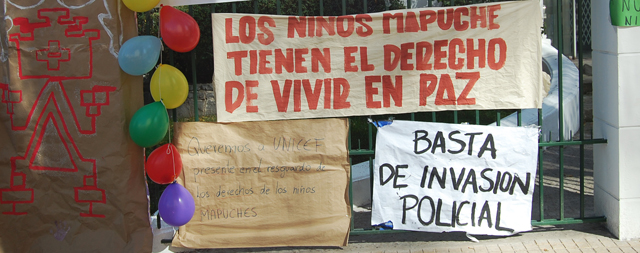 LOS NIÑOS MAPUCHE
TIENEN EL DERECHO
DE VIVIR EN PAZ
Queremos a UNICEF
presente en el resguardo de
los derechos de los niños
MAPUCHES
BASTA
DE INVASIÓN
POLICIAL